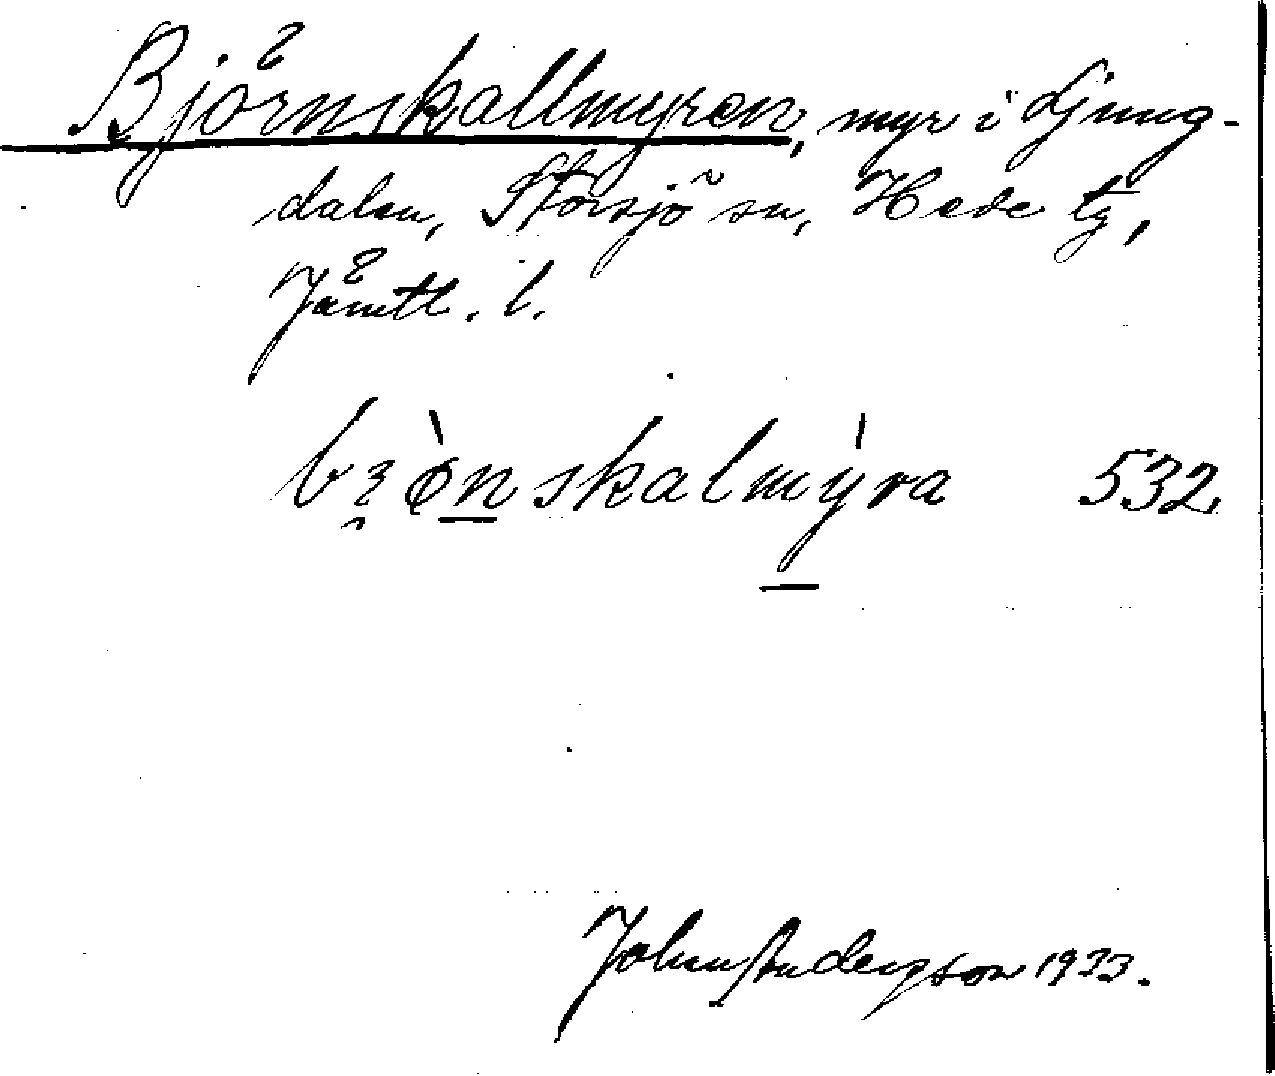 Björnskallmyren, myr i Ljung-
dalen, Storsjö sn, Hede tg,
Jämtl. l.
bȝ̯ònskalmỳra 532.
Johan Andersson 1933.